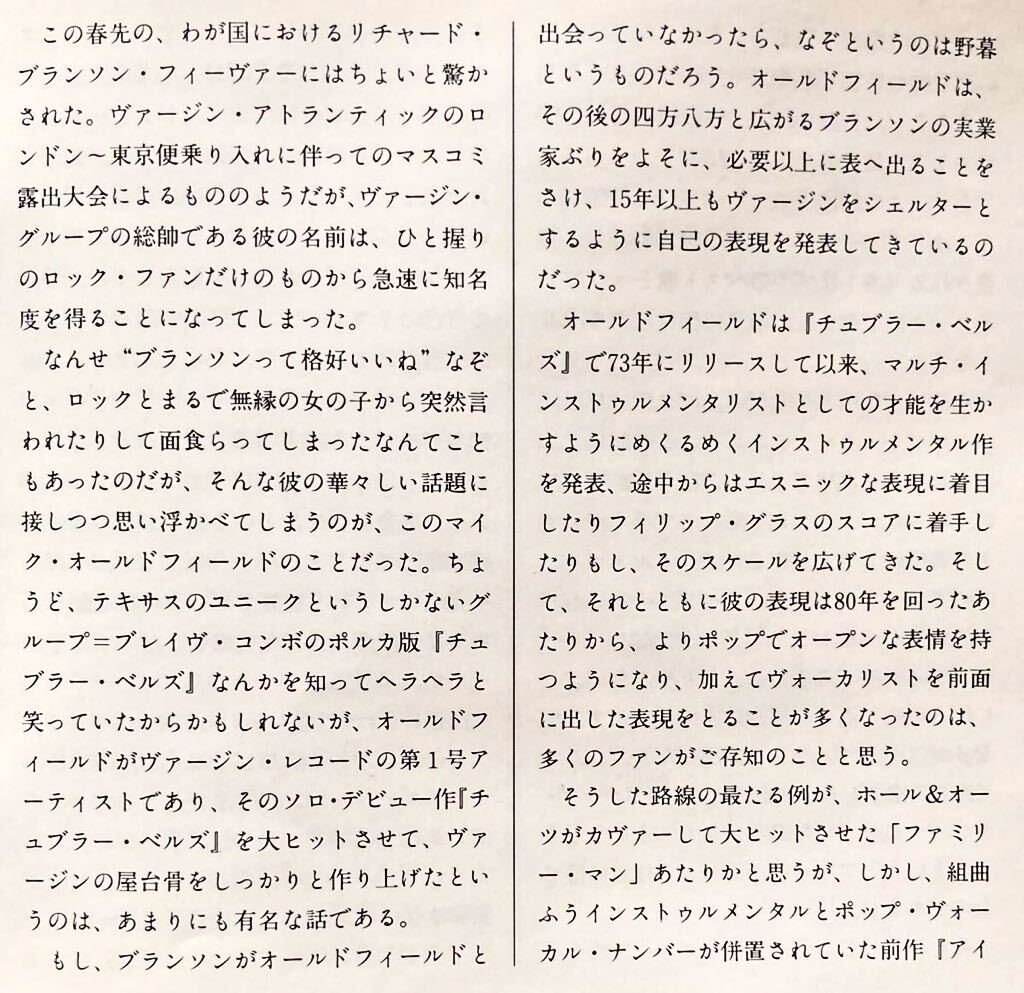 この春先の、わが国におけるリチャード・
ブランソン・フィーヴァーにはちょいと驚か
された。ヴァージン・アトランティックのロ
ンドン〜東京便乗り入れに伴ってのマスコミ
露出大会によるもののようだが、ヴァージン・
グループの総帥である彼の名前は、ひと握り
のロック・ファンだけのものから急速に知名
度を得ることになってしまった。
なんせ“ブランソンって格好いいね”なぞ
と、ロックとまるで無縁の女の子から突然言
われたりして面食らってしまったなんてこと
もあったのだが、そんな彼の華々しい話題に
接しつつ思い浮かべてしまうのが、このマイ
ク・オールドフィールドのことだった。ちょ
うど、テキサスのユニークというしかないグ
ループ＝ブレイヴ・コンボのポルカ版『チュ
ブラー・ベルズ』なんかを知ってヘラヘラと
笑っていたからかもしれないが、オールドフ
ィールドがヴァージン・レコードの第１号ア
ーティストであり、そのソロ・デビュー作『チ
ュブラー・ベルズ』を大ヒットさせて、ヴァ
ージンの屋台骨をしっかりと作り上げたとい
うのは、あまりにも有名な話である。
もし、ブランソンがオールドフィールドと
出会っていなかったら、なぞというのは野暮
というものだろう。オールドフィールドは、
その後の四方八方と広がるブランソンの実業
家ぶりをよそに、必要以上に表へ出ることを
さけ、15年以上もヴァージンをシェルターと
するように自己の表現を発表してきているの
だった。
オールドフィールドは『チュブラー・ベル
ズ』で73年にリリースして以来、マルチ・イ
ンストゥルメンタリストとしての才能を生か
すようにめくるめくインストゥルメンタル作
を発表、途中からはエスニックな表現に着目
したりフィリップ・グラスのスコアに着手し
たりもし、そのスケールを広げてきた。そし
て、それとともに彼の表現は80年を回ったあ
たりから、よりポップでオープンな表情を持
つようになり、加えてヴォーカリストを前面
に出した表現をとることが多くなったのは、
多くのファンがご存知のことと思う。
そうした路線の最たる例が、ホール＆オー
ツがカヴァーして大ヒットさせた「ファミリ
ー・マン」あたりかと思うが、しかし、組曲
ふうインストゥルメンタルとポップ・ヴォー
カル・ナンバーが併置されていた前作『アイ